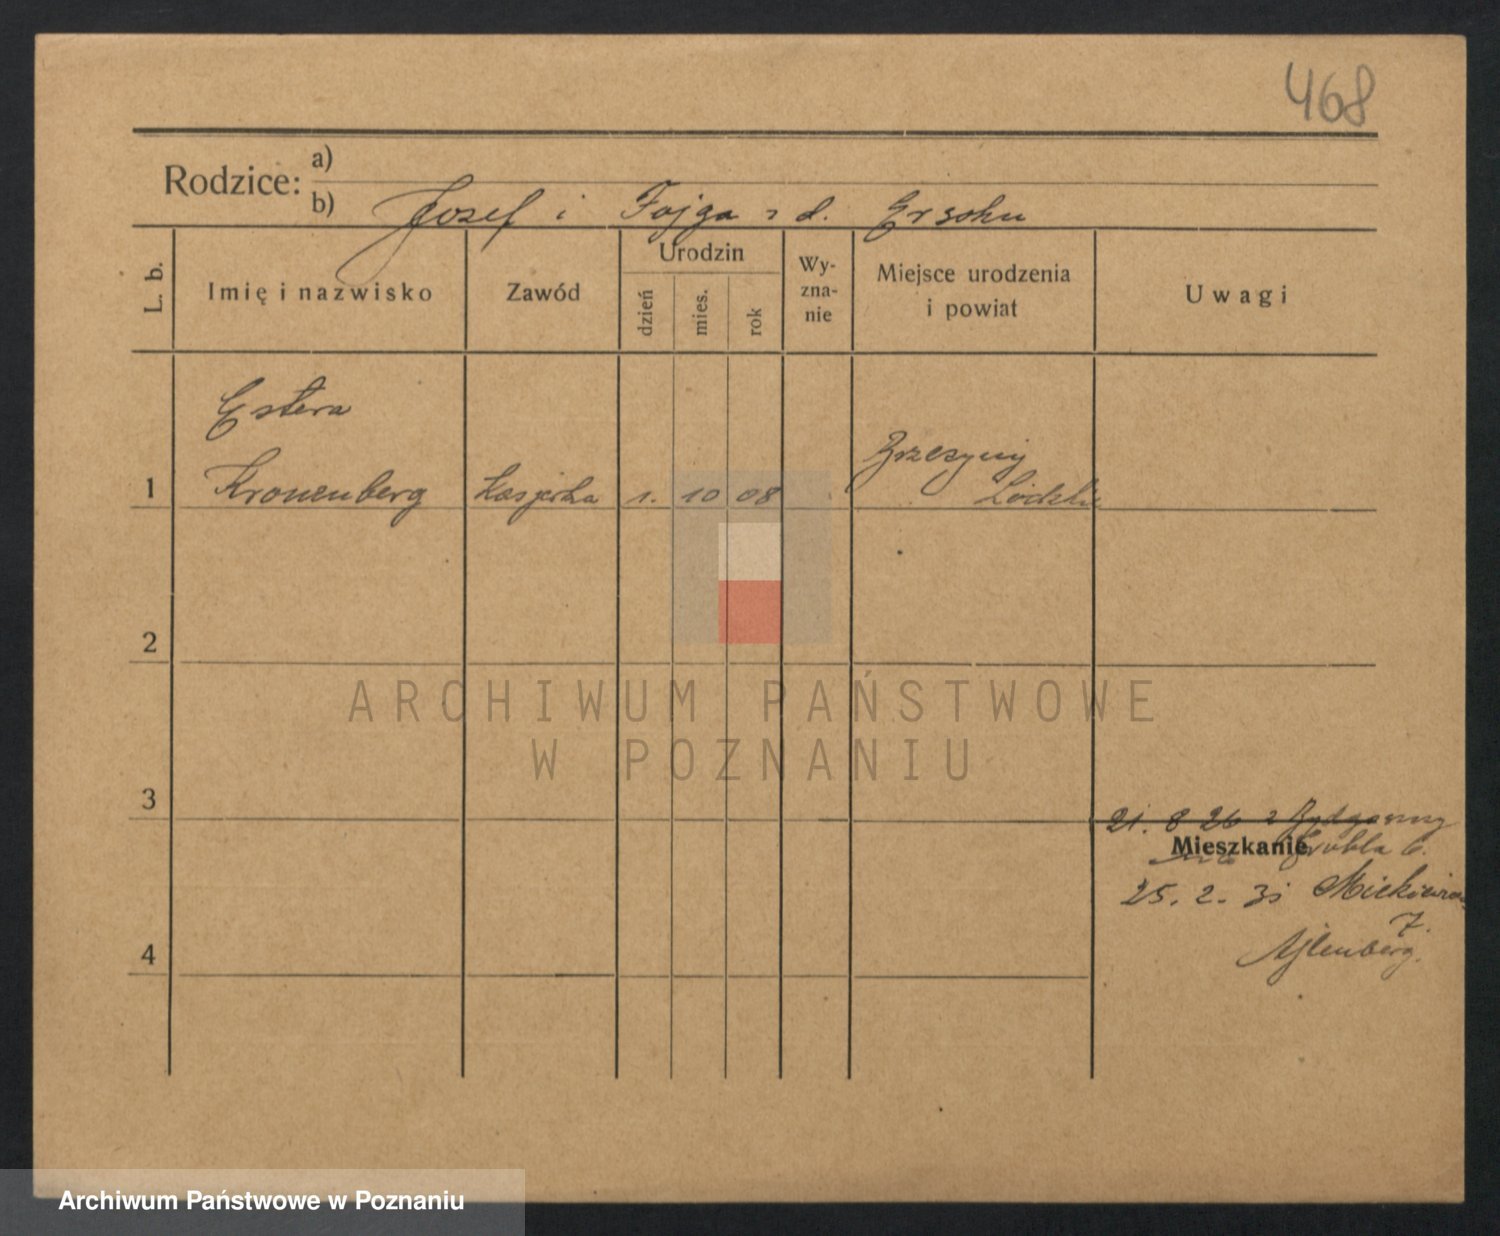 468
Rodzice: a)
b) Jozef i Fajga z d. Ersohn
L. b.
Imię i nazwisko
Zawód
Urodzin
dzień
mies.
rok
Wy-
zna-
nie
Miejsce urodzenia
i powiat
Uwagi
Estera
1 Kronenberg kasjerka 1. 10 08 Brzeziny
Łódzkie
2
ARCHIWUM PAŃSTWOWE
W POZNANIU
3
21. 8 26 z Bydgoszczy
Mieszkanie Grobla 6.
25. 2. 31 Mickiewicza
7.
4
Ajlenberg.
Archiwum Państwowe w Poznaniu